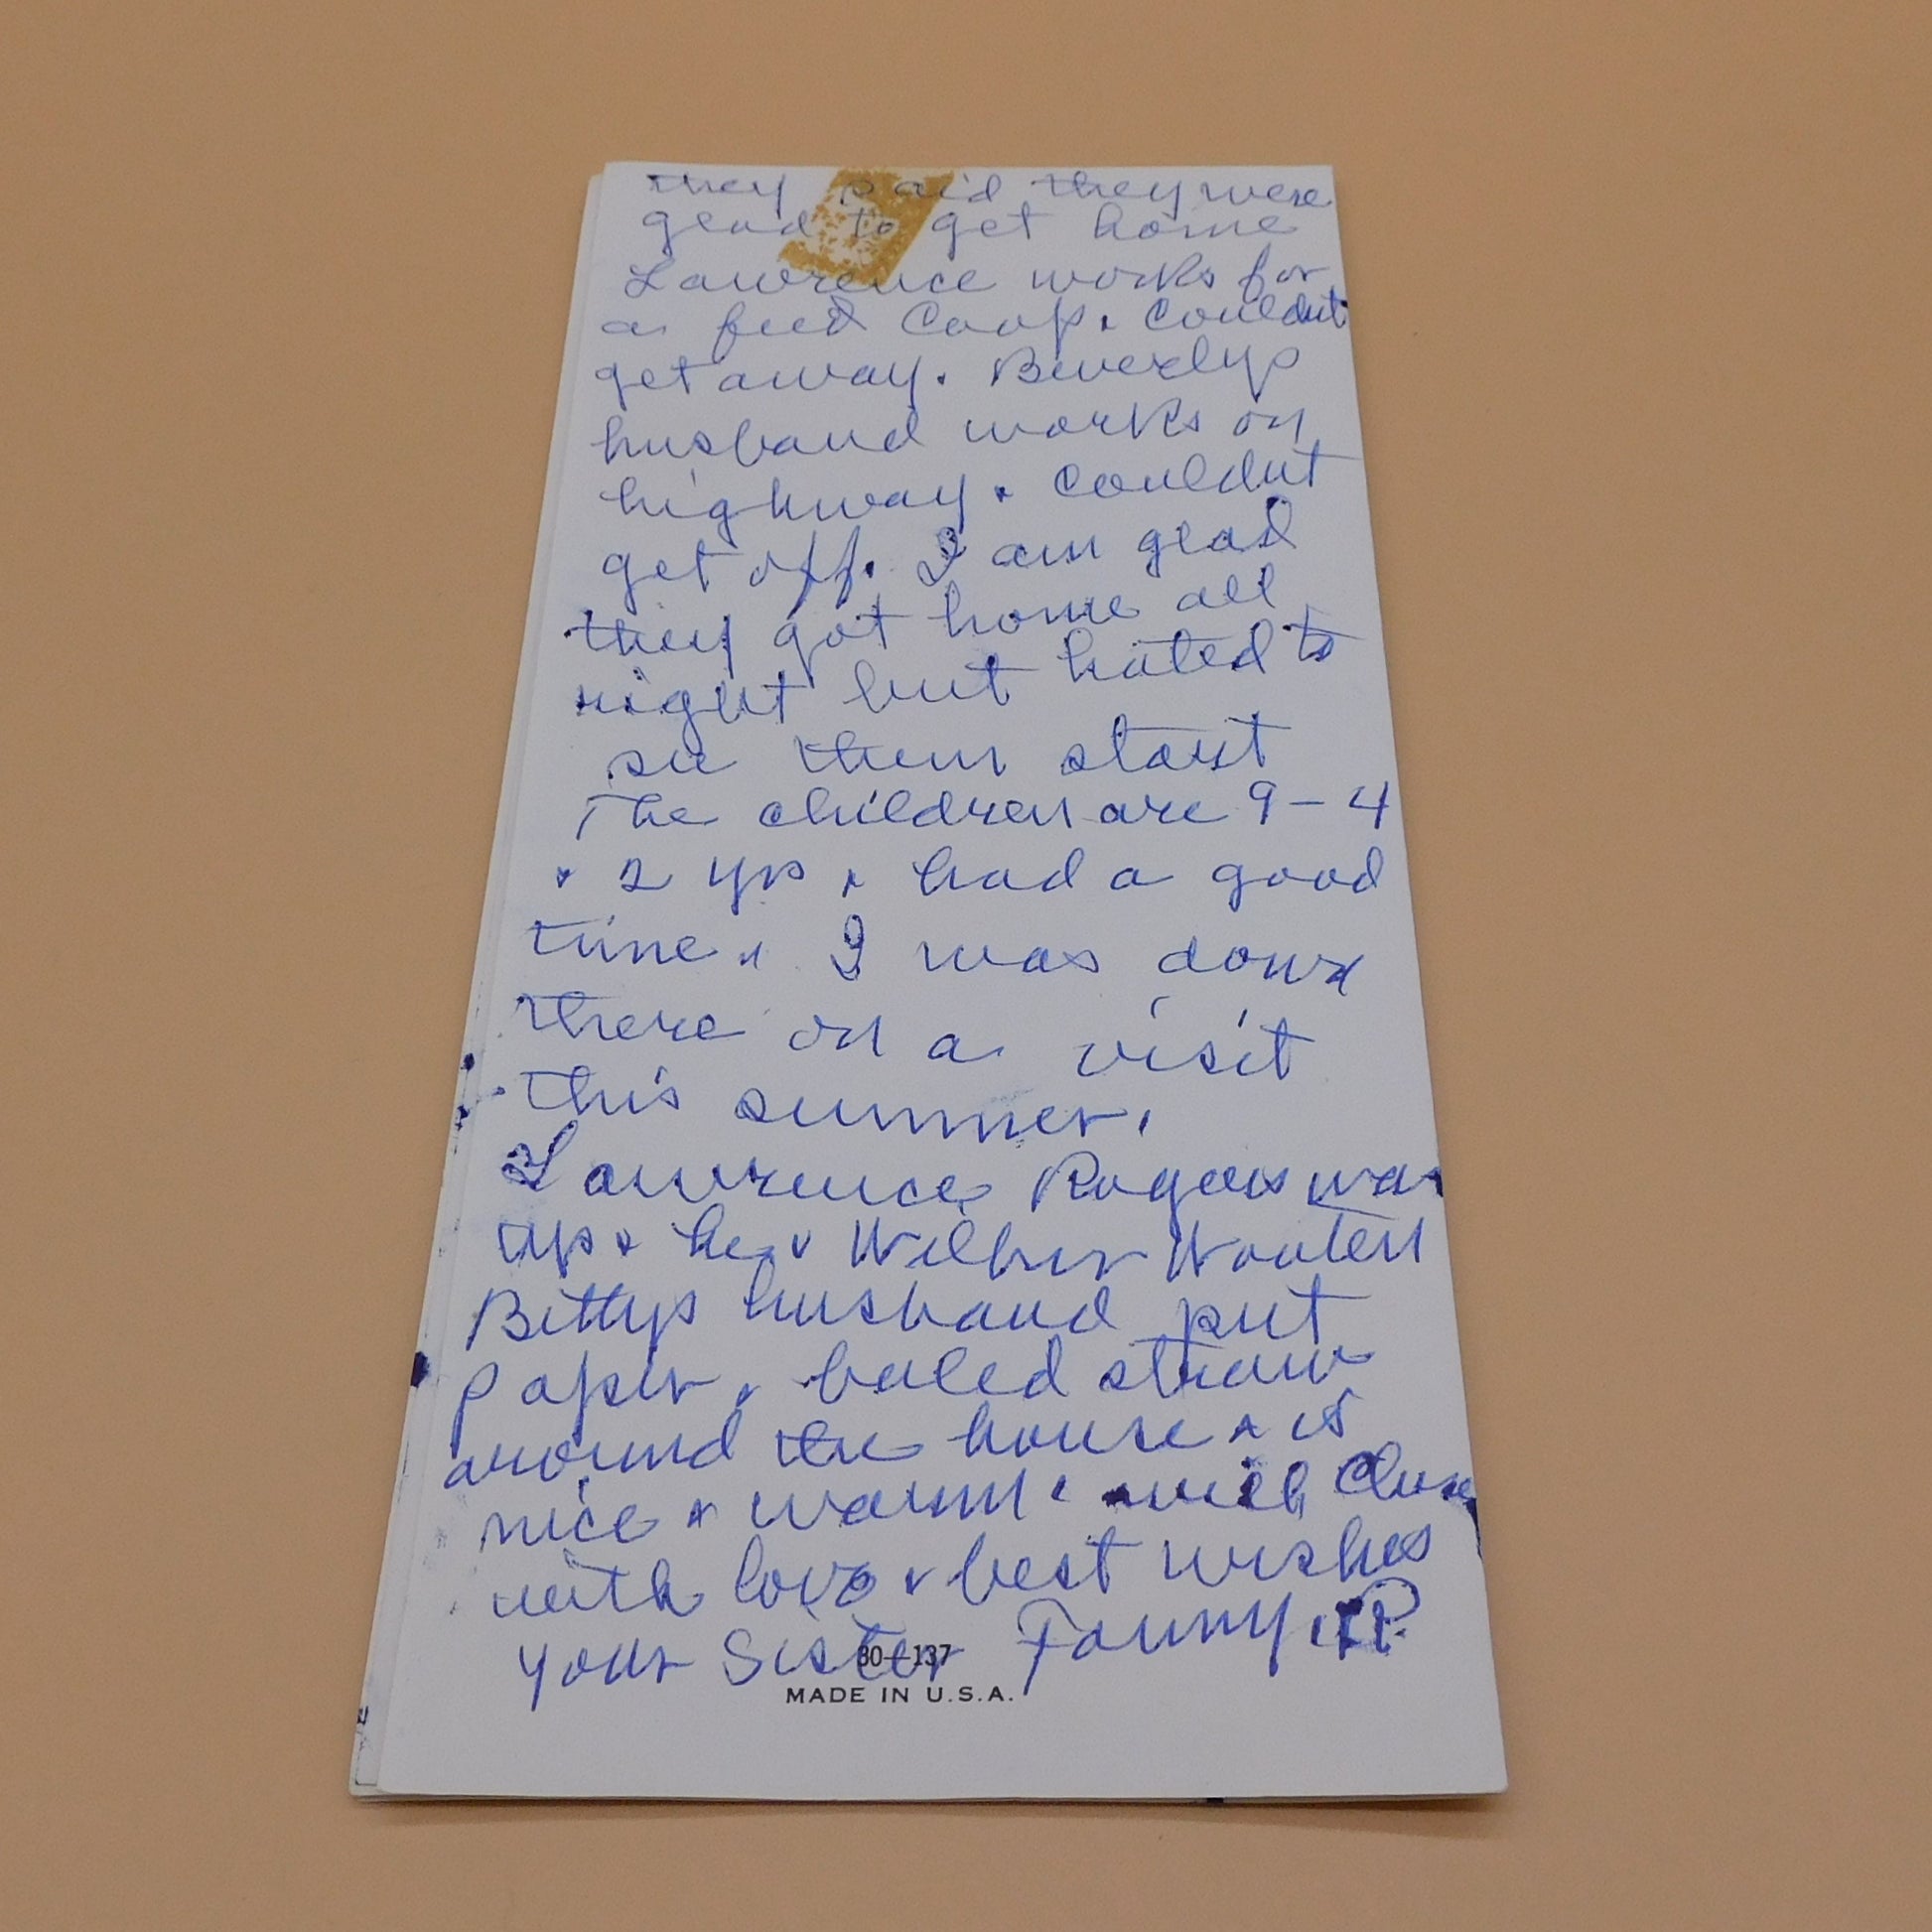 they said they were
glad to get home
Lawrence works for
a feed Coop & couldnt
get away. Beverlys
husband works on
highway & couldnt
get off. I am glad
they got home all
right but hated to
see them start
The children are 9-4
& 2 yrs & had a good
time & I was down
there on a visit
this summer.
Lawrence Rogers was
up & he & Wilbur Wooten
Bettys husband put
paper & baled straw
around the house & is
nice & warm. will close
with love & best wishes
your Sister Fanny
30—137
MADE IN U.S.A.